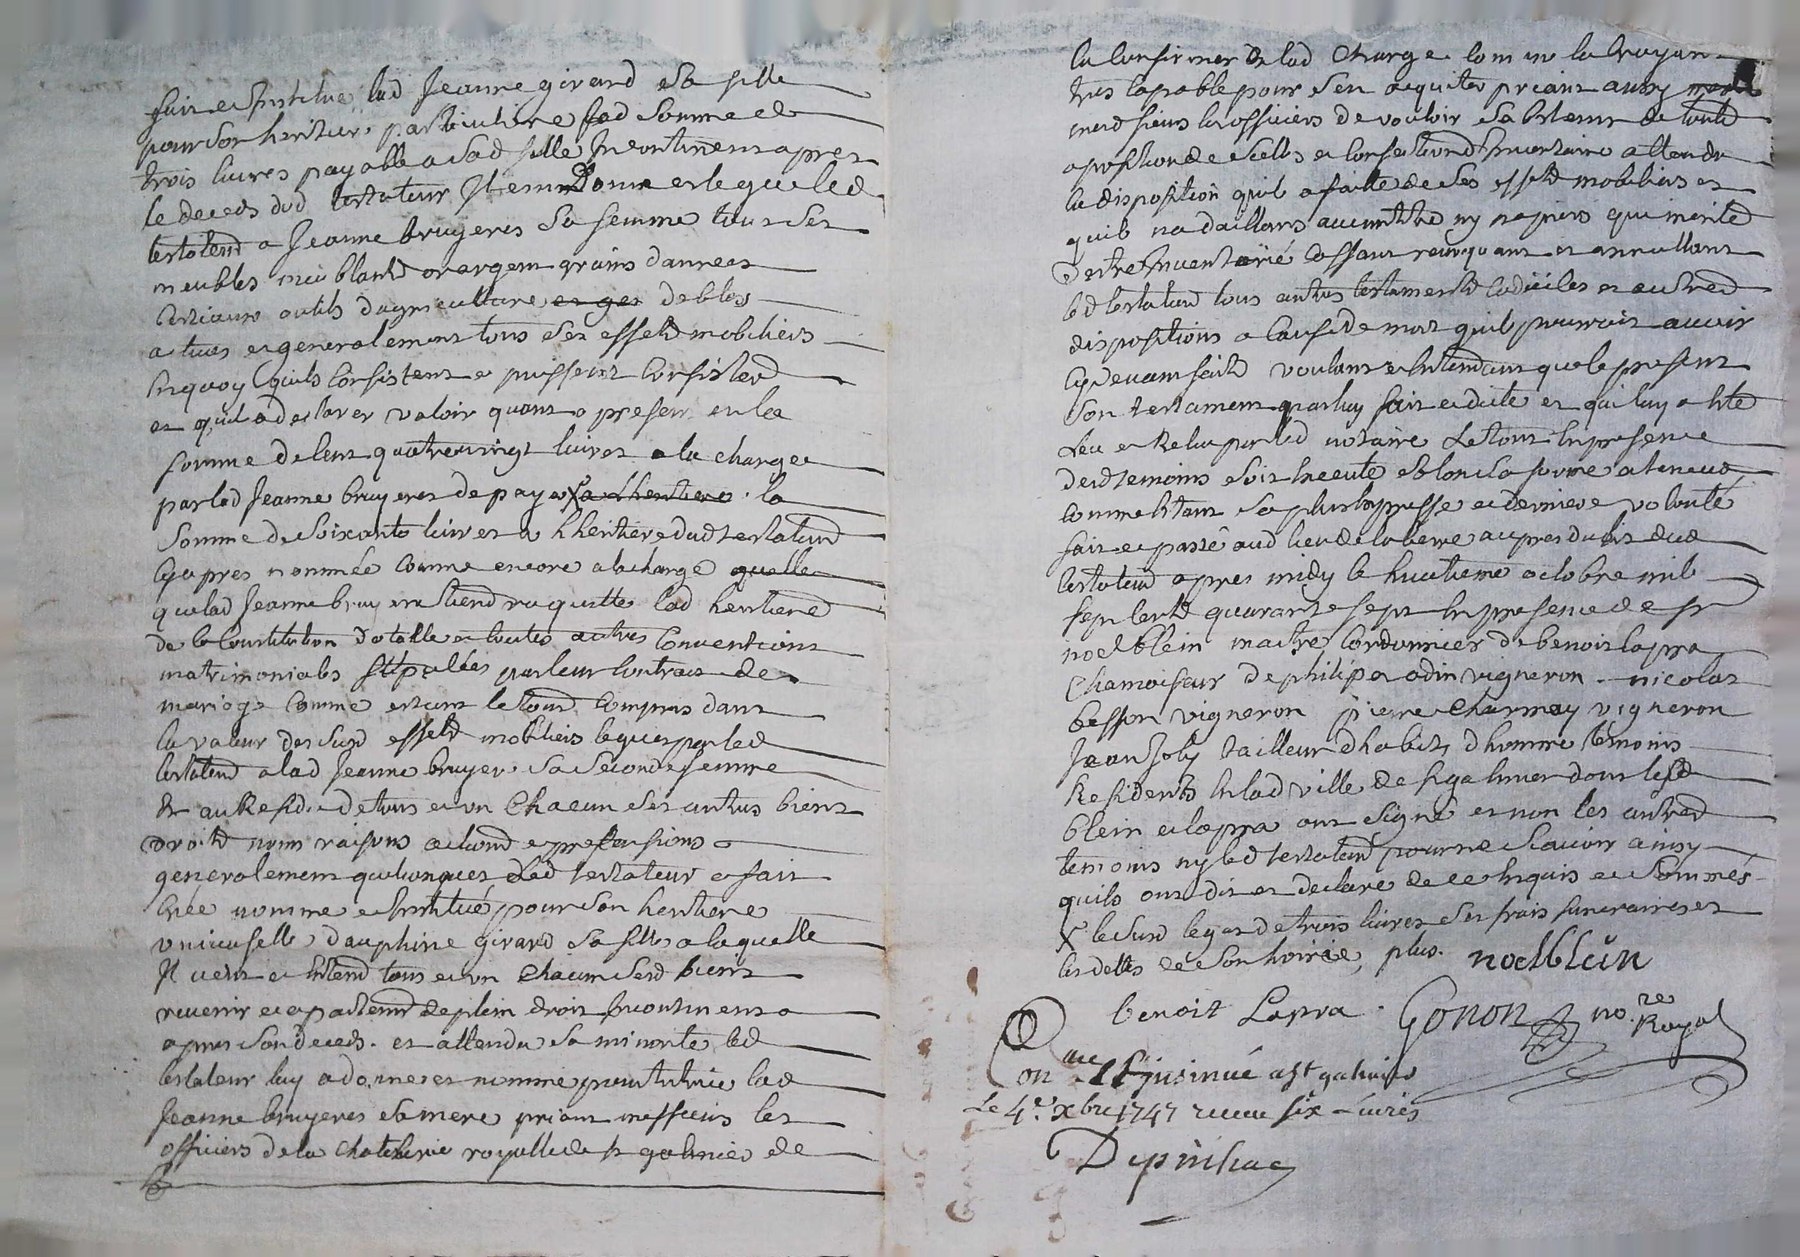 fait et institue lad Jeanne girard sa fille
pour son heritiere particuliere lad somme de
trois livres payable a sad fille Incontinent apres
le deceds dud testateur Item Donne et legue led
testateur a Jeanne bruyeres sa femme tous ses
meubles meublants or argent grains danrees
bestiaux outils dagriculture et ger de bles
actives et generalement tous ses effets mobiliers
En quoy quils consistent et puissent consister
et quil a declarer valoir quant a present en la
somme de cent quatrevingt livres a la charge
par lad Jeanne bruyeres de payer X a lheritiere la
somme de soixante livres a lheritiere dud testateur
cy apres nommée comme encore a la charge quelle
que lad Jeanne bruyeres tiendra quitte lad heritiere
de la Constitution dotalle et toutes autres Conventions
matrimoniales stipulées par leur Contrat de
mariage comme estant le tout compris dans
la valeur des susd effets mobiliers legues par led
testateur a lad Jeanne bruyer sa seconde femme
Et au Residu de tous et un Chacun ses autres biens
droits noms raisons actions et pretensions
generalement quelconques Led testateur a fait
créé nomme et Institué pour son heritiere
universelle dauphine girard sa fille a laquelle
Il veut et Entend tous et un Chacun sesd biens
revenir et apartenir de plein droit Incontinent
apres son deceds. et attendu sa minorité led
testateur luy a donne et nomme pour tutrice lad
Jeanne bruyeres sa mere priant messieurs les
officiers de la Chatelenie royalle de st galmier de
la Confirmer de lad Charge comme la Croyant
tres capable pour sen aquiter priant aussy
mesd sieurs les officiers de vouloir sabstenir de toute
aposition de scelles et confection dInventaire attendu
la disposition quil a faitte de ses effets mobiliers et
quil na dailleurs aucun titre ny papiers qui merite
destre Inventorié Cassant revoquant et annullant
led testateur tous autres testaments Codiciles et autres
dispositions a Cause de mort quil pourroit avoir
Cy devant faits voulant et Entendant que le present
son testament par luy fait et dicté et qui luy a Eté
Leu et Releu par led notaire Le tout En presence
desd temoins soit Execute selon sa forme et teneur
comme Etant sa plus Expresse et derniere volonté
fait et passé aud lieu de labeirre aupres du lit dud
testateur apres midy le huitieme octobre mil
sept cents quarante sept En presence de sr
noel blein maitre Cordonnier de benoit lapra
Chamoiseur de philipe odin vigneron nicolas
besson vigneron pierre Charmay vigneron
Jean Joly tailleur dhabits dhomme temoins
Residents En lad ville de st galmier dont lesd
blein et lapra ont signé et non les autres
temoins ny led testateur pour ne scavoir ainsy
quils ont dit et declare de ce Enquis et sommés
X le susd legas de trois livres ses frais funeraires et
les dettes de son hoirie, plus. noel blein
benoit Lapra. Gonon no.re Royal
Con.lle et Insinué a st galmier
Le 4e. xbre 1747 receu six Livres